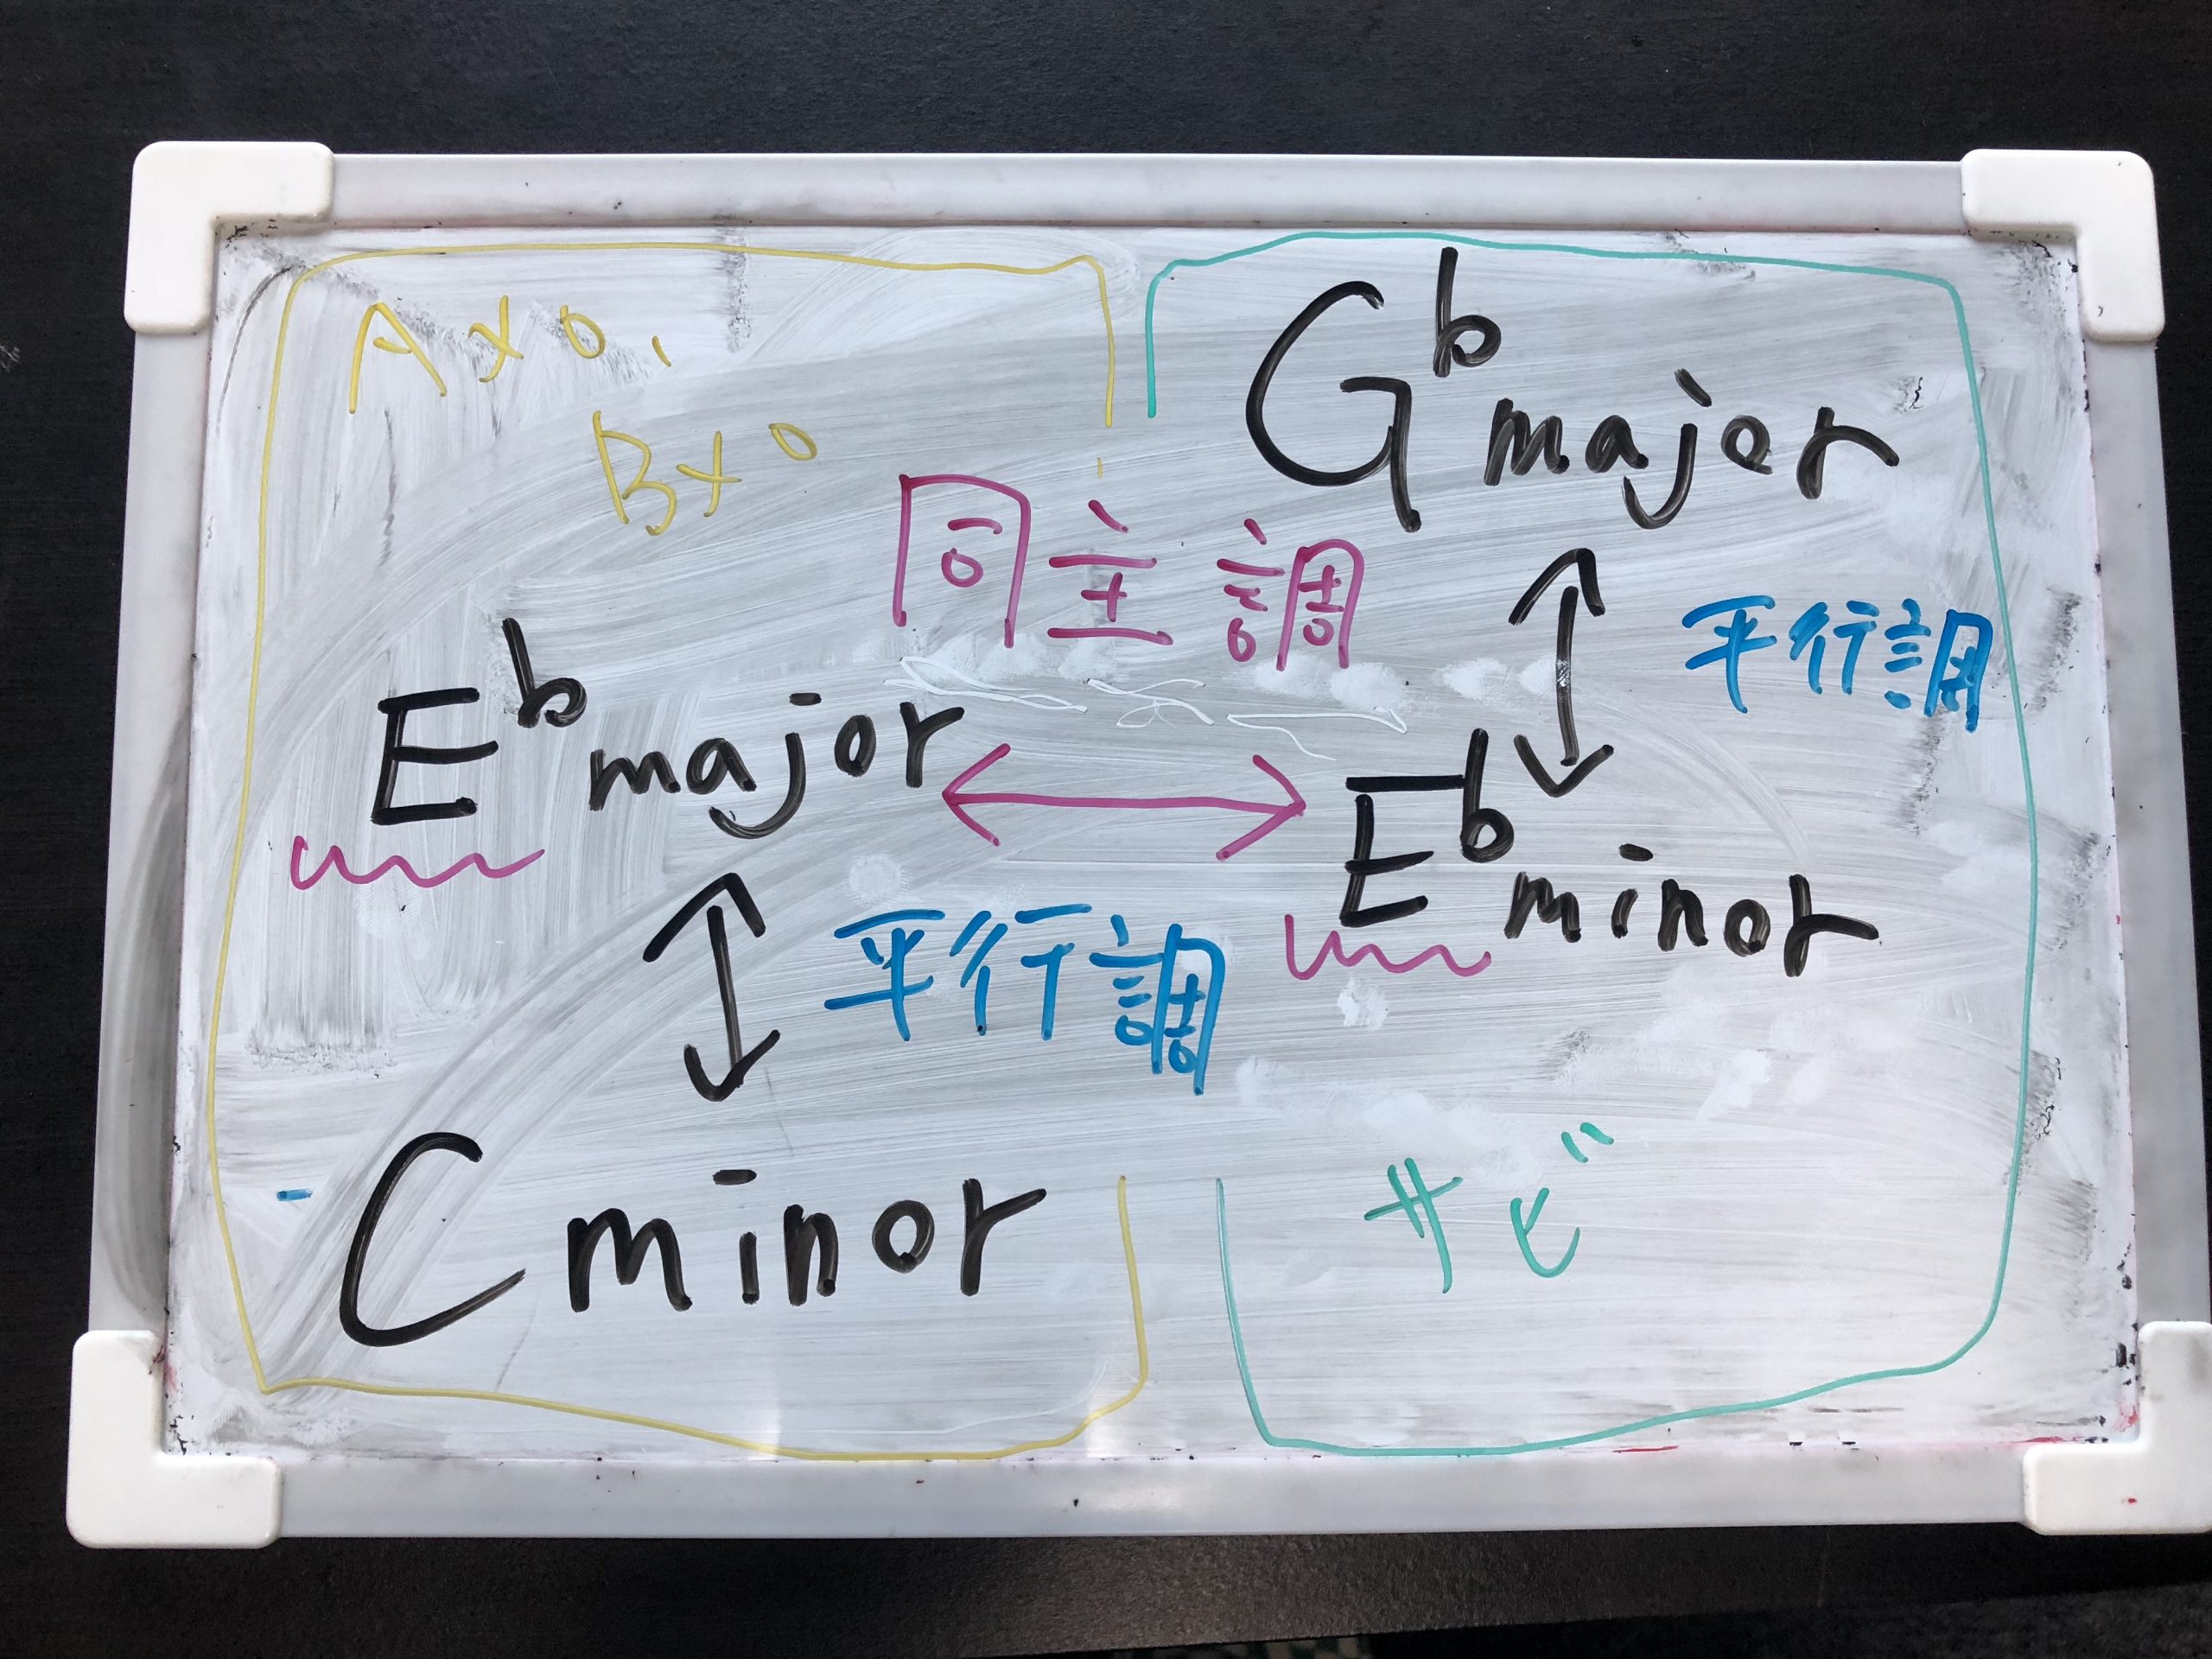 Aメロ、
Bメロ
G♭major
同主調
平行調
E♭major
E♭minor
平行調
C minor
サビ